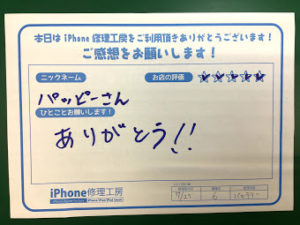 本日は iPhone 修理工房をご利用頂きありがとうございます!
ご感想をお願いします!
ニックネーム
お店の評価
パッピーさん
ひとことお願いします!
ありがとう!!
iPhone修理工房